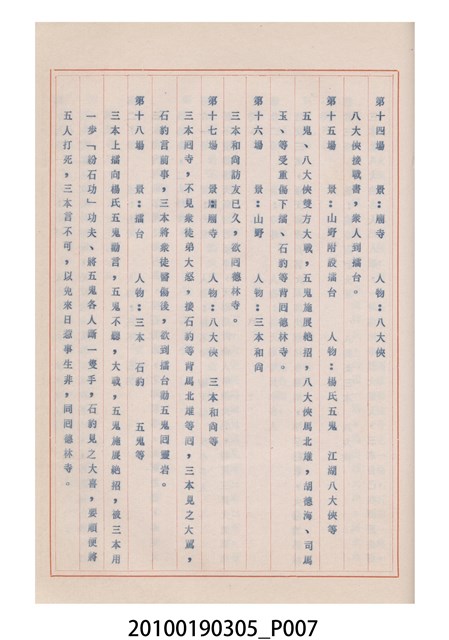 第十四場　景：廟寺　人物：八大俠
八大俠接戰書，衆人到擂台。
第十五場　景：山野附設擂台　人物：楊氏五鬼　江湖八大俠等
五鬼、八大俠雙方大戰，五鬼施展絶招，八大俠馬北雄，胡德海、司馬
玉、等受重傷下擂、石豹等背囘德林寺。
第十六場　景：山野　人物：三本和尚
三本和尚訪友已久，欲囘德林寺。
第十七場　景：廟寺　人物：八大俠　三本和尚等
三本囘寺，不見衆徒弟大怒，接石豹等背馬北雄等囘，三本見之大駡，
石豹言前事，三本將衆徒醫傷後，欲到擂台勸五鬼囘靈岩。
第十八場　景：擂台　人物：三本　石豹　五鬼等
三本上擂向楊氏五鬼勸言，五鬼不聽，大戰，五鬼施展絶招，被三本用
一步「粉石功」功夫、將五鬼各人斷一隻手，石豹見之大喜，要順便將
五人打死，三本言不可，以免來日惹事生非，同囘德林寺。
20100190305_P007